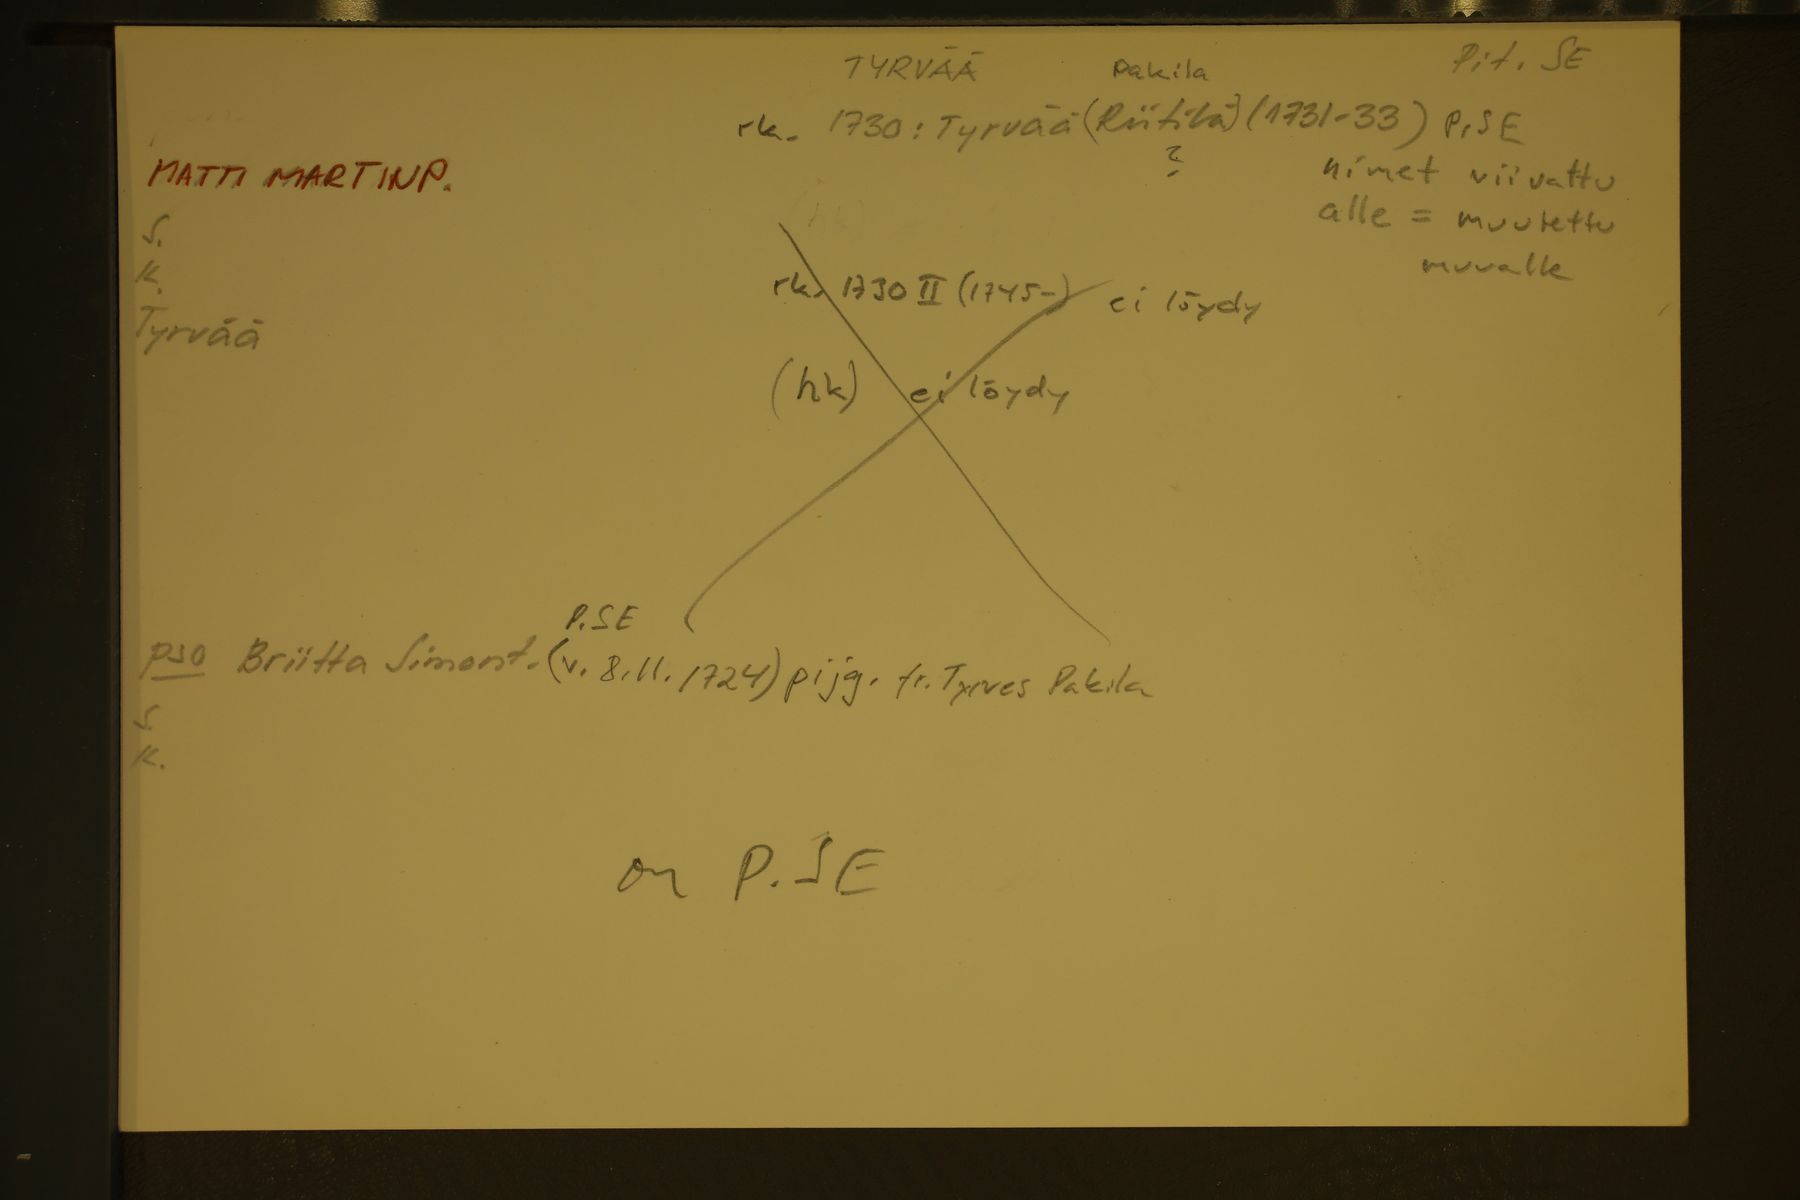 TYRVÄÄ Pakila Pit. SE
rk. 1730: Tyrvää (Riitilä) (1731-33) P.SE
?
nimet viivattu
alle = muutettu
muualle
MATTI MARTINP.
S.
K.
Tyrvää
rk. 1730 II (1745-) ei löydy
(hk) ei löydy
P.SE
pso Briitta Simont. (v. 8.11. 1724) pijg. fr. Tyrves Pakila
S.
K.
on P.SE